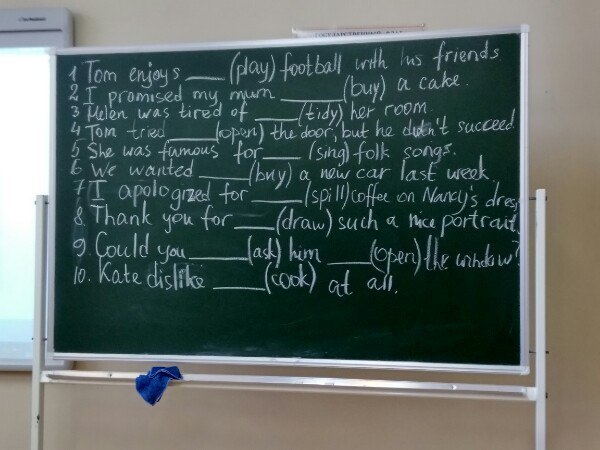 ГОСУДАРСТВЕННЫЙ
1 Tom enjoys ____ (play) football with his friends
2 I promised my mum ______ (buy) a cake.
3 Helen was tired of ____ (tidy) her room.
4 Tom tried ____ (open) the door, but he didn't succeed.
5 She was famous for ____ (sing) folk songs.
6 We wanted ____ (buy) a new car last week.
7 I apologized for ____ (spill) coffee on Nancy's dress.
8. Thank you for ____ (draw) such a nice portrait.
9. Could you ____ (ask) him ____ (open) the window?
10. Kate dislike ____ (cook) at all.